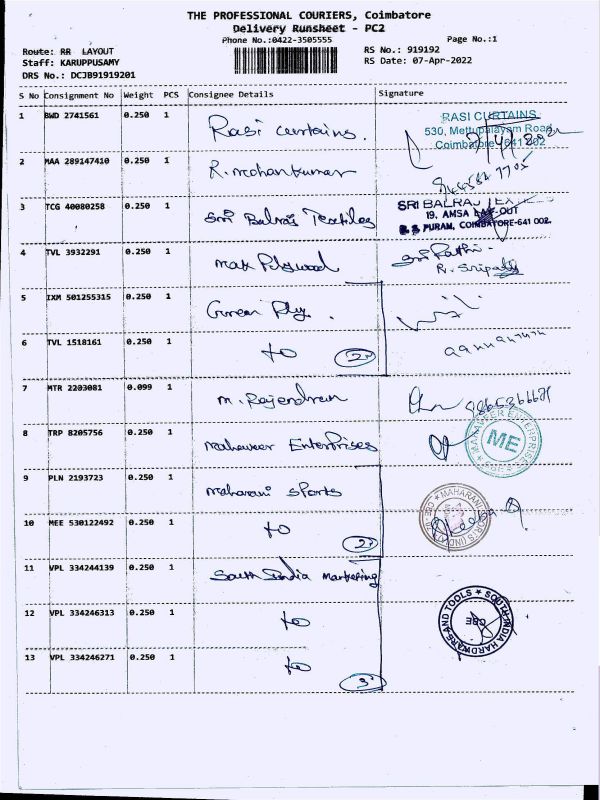 THE PROFESSIONAL COURIERS, Coimbatore
Delivery Runsheet - PC2
Phone No.:0422-3505555 Page No.:1
Route: RR LAYOUT RS No.: 919192
Staff: KARUPPUSAMY RS Date: 07-Apr-2022
DRS No.: DCJB91919201
S No Consignment No Weight PCS Consignee Details Signature
1 BWD 2741561 0.250 1 Rasi curtains. RASI CURTAINS
530, Mettupalayam Road,
Coimbatore - 641 002
2 MAA 289147410 0.250 1 R. mohankumar
3 TCG 40080258 0.250 1 Sri Balraj Textiles SRI BALRAJ TEXTILES
19, AMSA LAY-OUT
R.S. PURAM, COIMBATORE-641 002.
4 TVL 3932291 0.250 1 mak Plywood
R. Sripathy
5 IXM 501255315 0.250 1 Green Ply.
6 TVL 1518161 0.250 1 to 2
7 MTR 2203081 0.099 1 m. Rajendran
8 TRP 8205756 0.250 1 mahaveer Enterprises MAHAVEER ENTERPRISES
ME
CBE
9 PLN 2193723 0.250 1 maharani sports
10 MEE 530122492 0.250 1 to 2
11 VPL 334244139 0.250 1 South India marketing
12 VPL 334246313 0.250 1 to SOUTH INDIA HARDWARE AND TOOLS
CBE
13 VPL 334246271 0.250 1 to 3